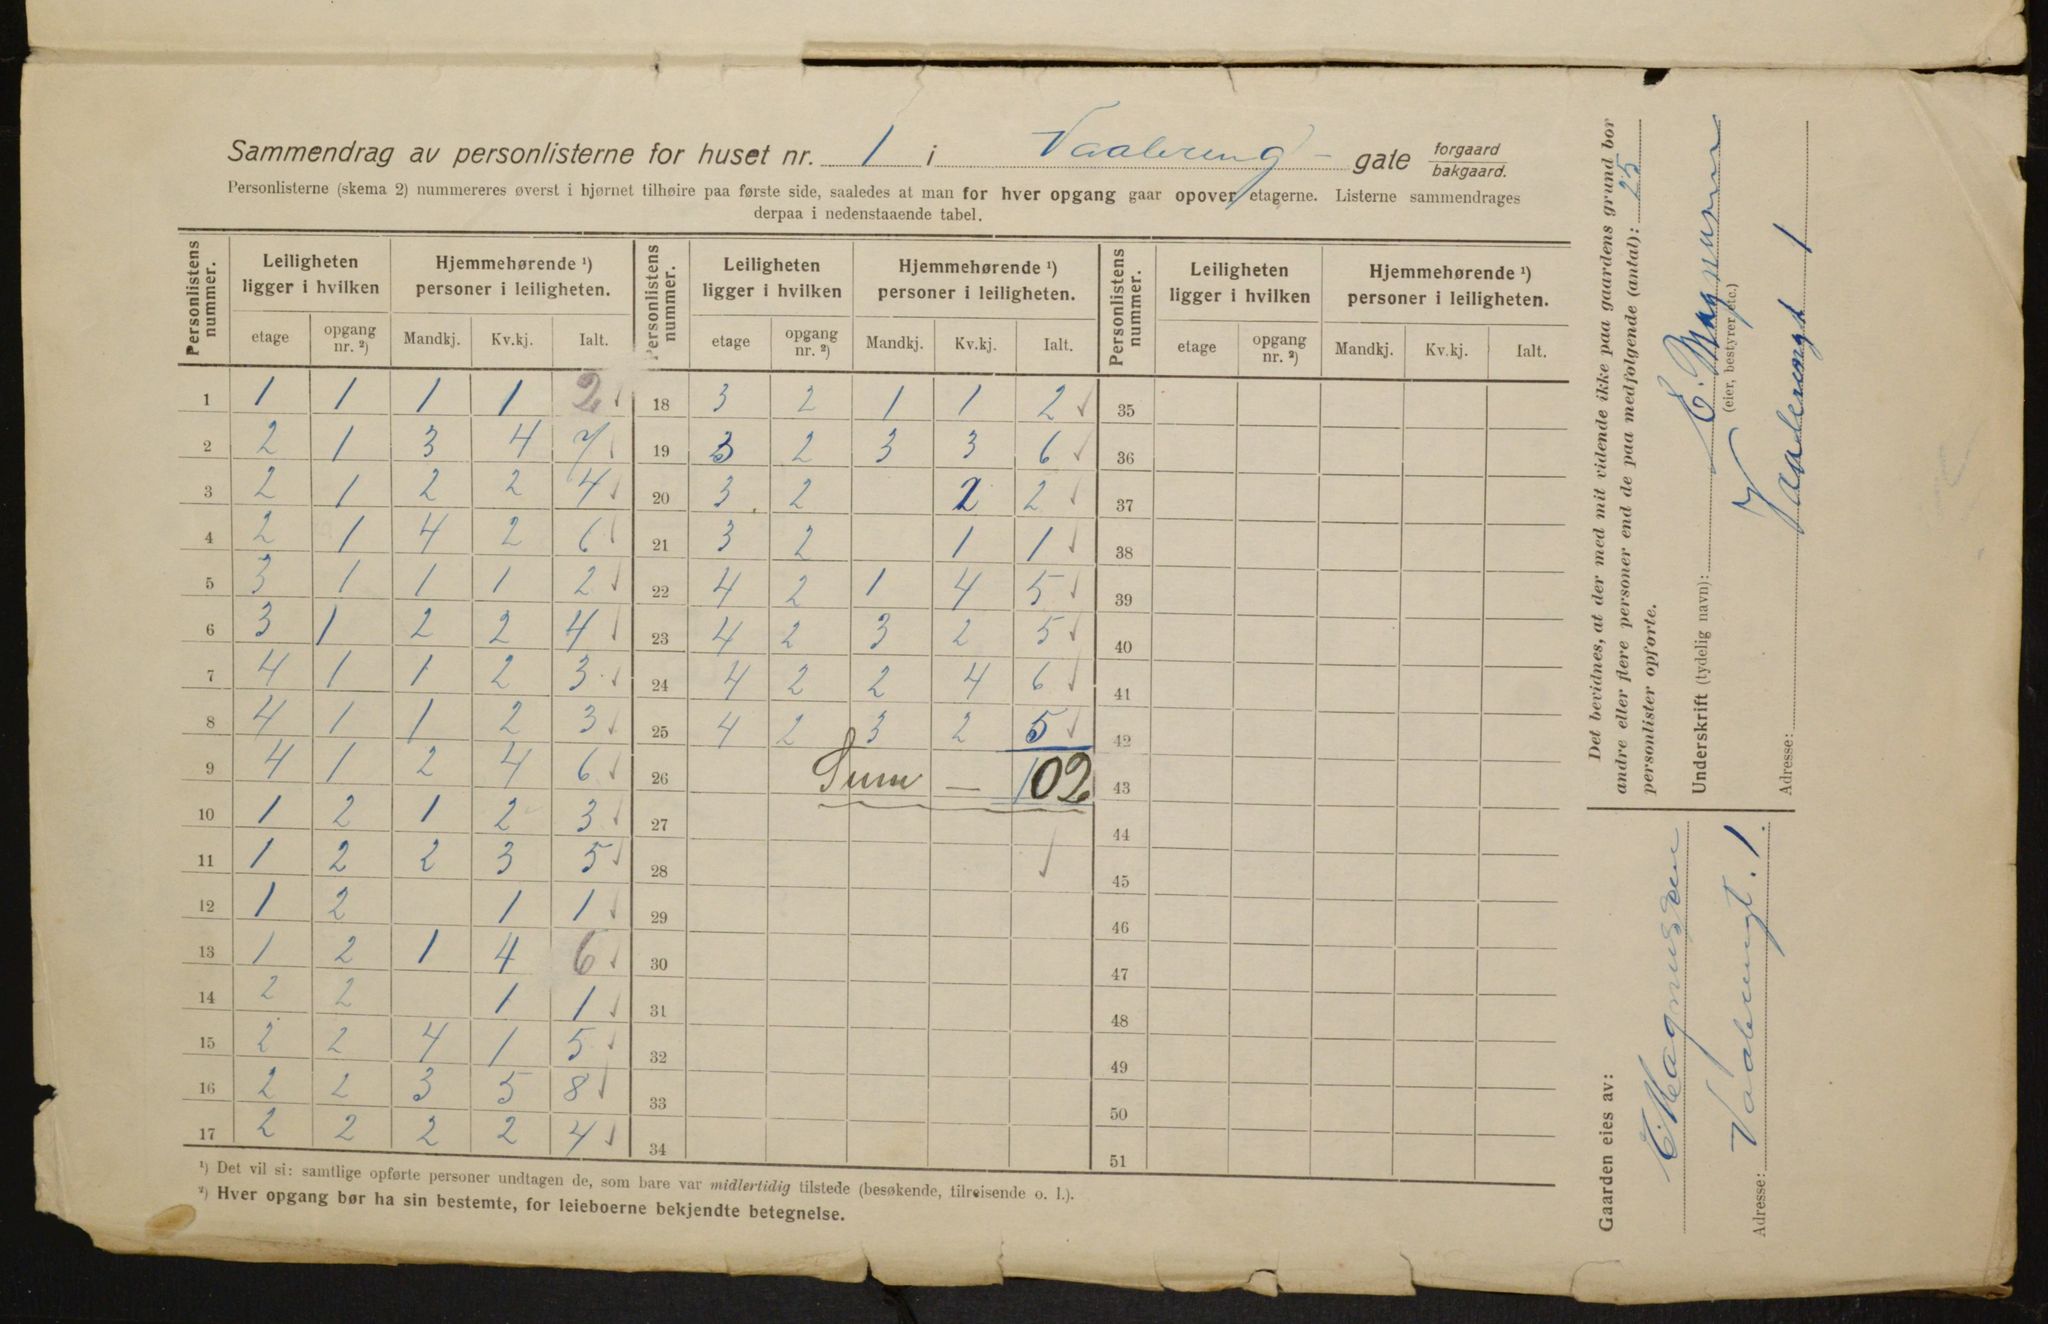 Sammendrag av personlisterne for huset nr. 1 i Vaalereng - gate forgaard bakgaard.
Personlisterne (skema 2) nummereres øverst i hjørnet tilhøire paa første side, saaledes at man for hver opgang gaar opover etagerne. Listerne sammendrages
derpaa i nedenstaaende tabel.
Personlistens nummer. Leiligheten ligger i hvilken Hjemmehørende ¹) personer i leiligheten. Personlistens nummer. Leiligheten ligger i hvilken Hjemmehørende ¹) personer i leiligheten. Personlistens nummer. Leiligheten ligger i hvilken Hjemmehørende ¹) personer i leiligheten.
etage opgang nr. ²) Mandkj. Kv.kj. Ialt. etage opgang nr. ²) Mandkj. Kv.kj. Ialt. etage opgang nr. ²) Mandkj. Kv.kj. Ialt.
1 1 1 1 1 2 ✓ 18 3 2 1 1 2 ✓ 35
2 2 1 3 4 7 ✓ 19 3 2 3 3 6 ✓ 36
3 2 1 2 2 4 ✓ 20 3 2 2 2 ✓ 37
4 2 1 4 2 6 ✓ 21 3 2 1 1 ✓ 38
5 3 1 1 1 2 ✓ 22 4 2 1 4 5 ✓ 39
6 3 1 2 2 4 ✓ 23 4 2 3 2 5 ✓ 40
7 4 1 1 2 3 ✓ 24 4 2 2 4 6 ✓ 41
8 4 1 1 2 3 ✓ 25 4 2 3 2 5 ✓ 42
9 4 1 2 4 6 ✓ 26 Sum — 102 43
10 1 2 1 2 3 ✓ 27 44
11 1 2 2 3 5 ✓ 28 ✓ 45
12 1 2 1 1 ✓ 29 46
13 1 2 1 4 6 ✓ 30 47
14 2 2 1 1 ✓ 31 48
15 2 2 4 1 5 ✓ 32 49
16 2 2 3 5 8 ✓ 33 50
17 2 2 2 2 4 ✓ 34 51
¹) Det vil si: samtlige opførte personer undtagen de, som bare var midlertidig tilstede (besøkende, tilreisende o. l.).
²) Hver opgang bør ha sin bestemte, for leieboerne bekjendte betegnelse.
Det bevidnes, at der med mit vidende ikke paa gaardens grund bor
andre eller flere personer end de paa medfølgende (antal): 25
personlister opførte.
Underskrift (tydelig navn): E. Magnussen
(eier, bestyrer etc.)
Adresse: Vaalerenggt 1
Gaarden eies av:
E. Magnussen
Adresse: Vaalerenggt. 1.